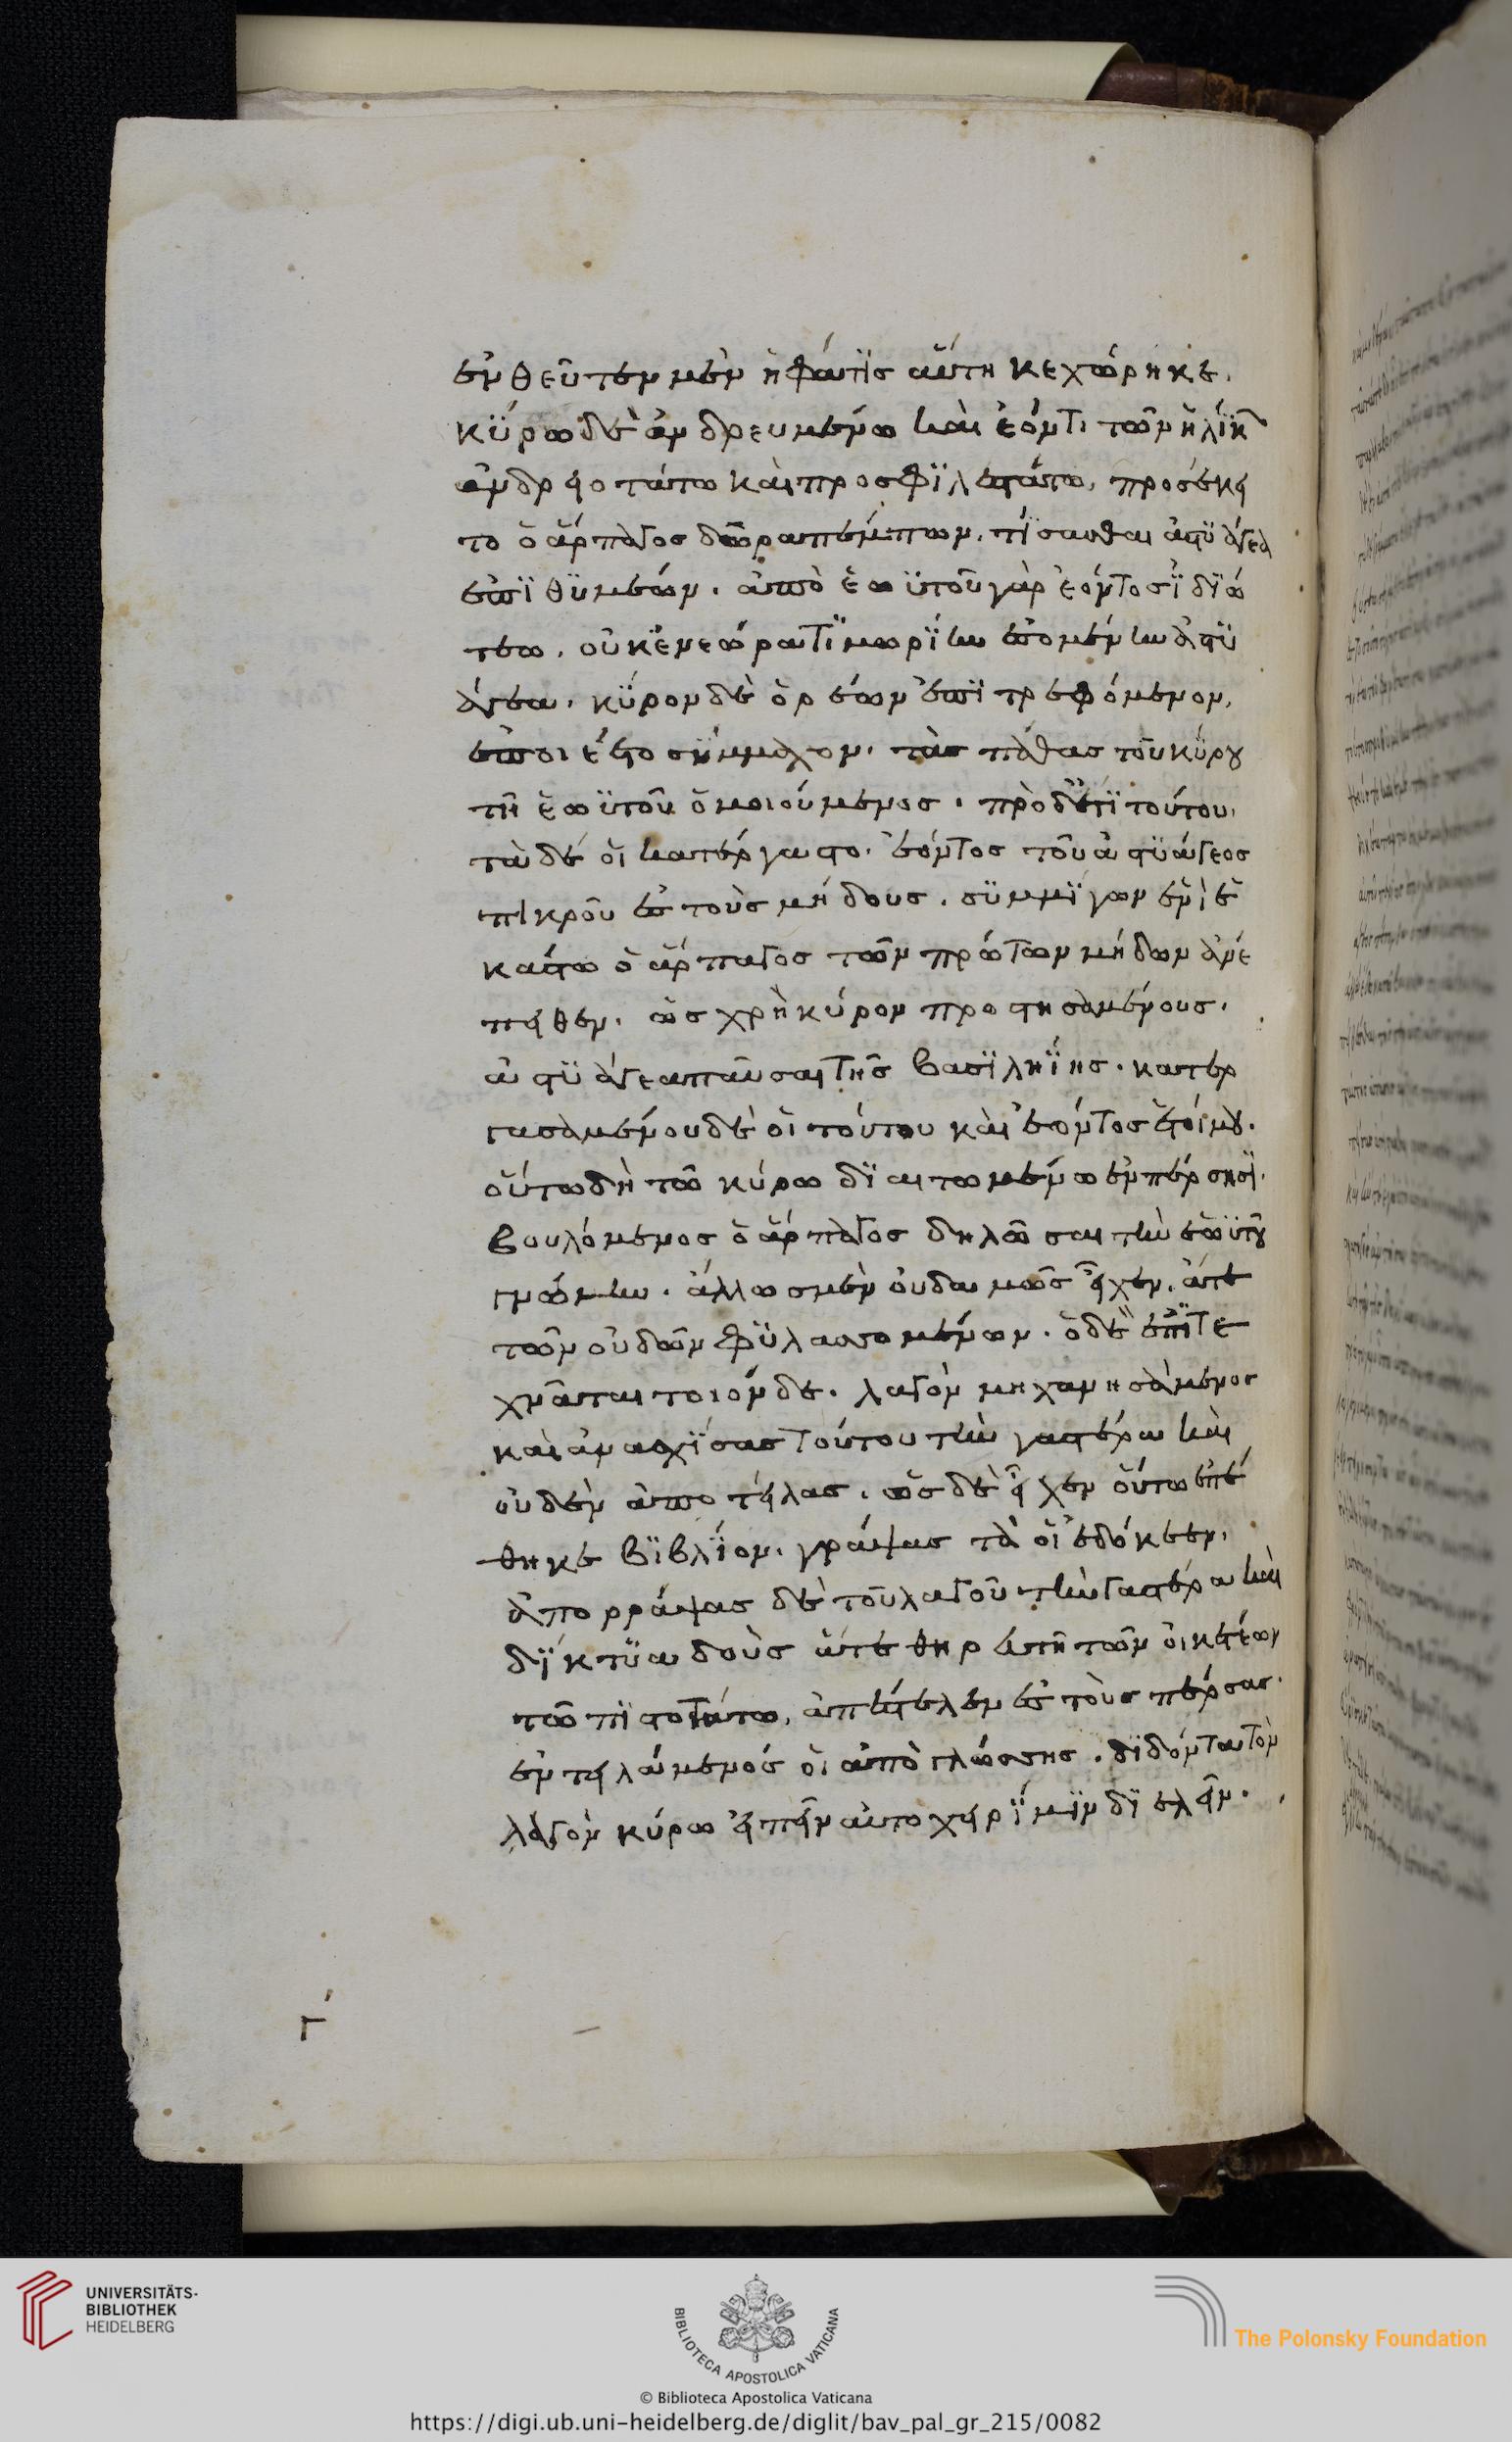 ἐνθεῦτεν μὲν ἡ φάτϊς αὕτη κεχώρηκε.
κύρω δὲ ἀνδρευμένω καὶ ἐόντι τῶν ἡλίκ
ἀνδρειοτάτω καὶ προσφϊλεστάτω, προσέκει
το ὁ ἅρπαγος δῶρα πέμπων. τίσασθαι ἀστϋάγεα
ἐπϊθϋμέων. ἀπὸ ἑωϋτοῦ γὰρ ἐόντος ἰδϊώ
τεω, οὐκ ἐνεώρα τϊμωρίην ἐσομένην ἀστϋ
άγεα. κῦρον δὲ ὁρέων ἐπϊτρεφόμενον,
ἐποιέετο σύμμαχον. τὰς πάθας τοῦ κύρου
τῆ ἑωϋτοῦ ὁμοιούμενος. πρὸ δ' ἔτϊ τούτου,
τάδε οἱ κατέργαστο. ἐόντος τοῦ ἀστϋάγεος
πικροῦ ἐς τοὺς μήδους. σϋμμίσγων ἑνὶ ἑ
κάστω ὁ ἅρπαγος τῶν πρώτων μήδων ἀνέ
πειθεν. ὡς χρὴ κύρον προστησαμένους.
ἀστϋάγεα παῦσαι τῆς βασϊληΐης. κατερ
γασαμένου δέ οἱ τούτου καὶ ἐόντος ἑτοίμου.
οὕτω δὴ τῶ κύρω δϊαιτωμένω ἐν πέρσησϊ.
βουλόμενος ὁ ἅρπαγος δηλῶσαι τὴν ἑωϋτοῦ
γνώμην. ἄλλως μὲν οὐδαμῶς εἶχεν. ἅτε
τῶν οὐδῶν φϋλασσομένων. ὁ δὲ ἐπϊτε
χνᾶται τοιόνδε. λαγὸν μηχανησάμενος
καὶ ἀνασχίσας τούτου τὴν γαστέρα καὶ
οὐδὲν ἀποτείλας. ὡς δὲ εἶχεν οὕτω ἐσέ
θηκε βϊβλίον. γράψας τά οἱ ἐδόκεεν.
ἀπορράψας δὲ τοῦ λαγοῦ τὴν γαστέρα καὶ
δίκτϋα δοὺς ἅτε θηρευτῆ τῶν οἰκετέων
τῶ πϊστοτάτω, ἀπέστελεν ἐς τοὺς πέρσας.
ἐντειλάμενός οἱ ἀπὸ γλώσσης. δϊδόντα τὸν
λαγὸν κύρω εἰπεῖν αὐτοχειρί μϊν δϊελεῖν.
γ´
UNIVERSITÄTS-
BIBLIOTHEK
HEIDELBERG
BIBLIOTECA APOSTOLICA VATICANA
The Polonsky Foundation
© Biblioteca Apostolica Vaticana
https://digi.ub.uni-heidelberg.de/diglit/bav_pal_gr_215/0082